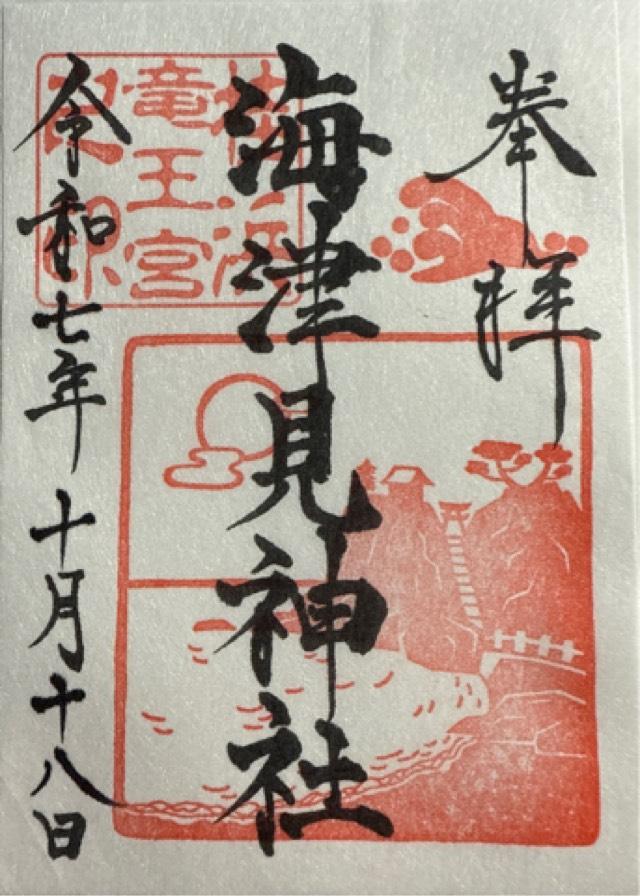 奉拝
海津見神社
桂浜
竜王宮
之印
令和七年十月十八日